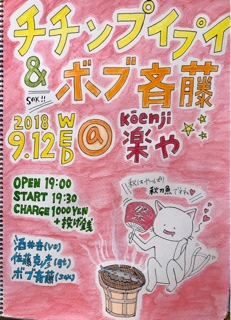 チチンプイプイ
&
ボブ斉藤
SAX!!
2018
9.12
WED
@
kōenji
楽や
OPEN 19:00
START 19:30
CHARGE 1000YEN
+投げ銭
佐藤克彦(gt)
ボブ斉藤(sax)
秋の魚ですね
祭